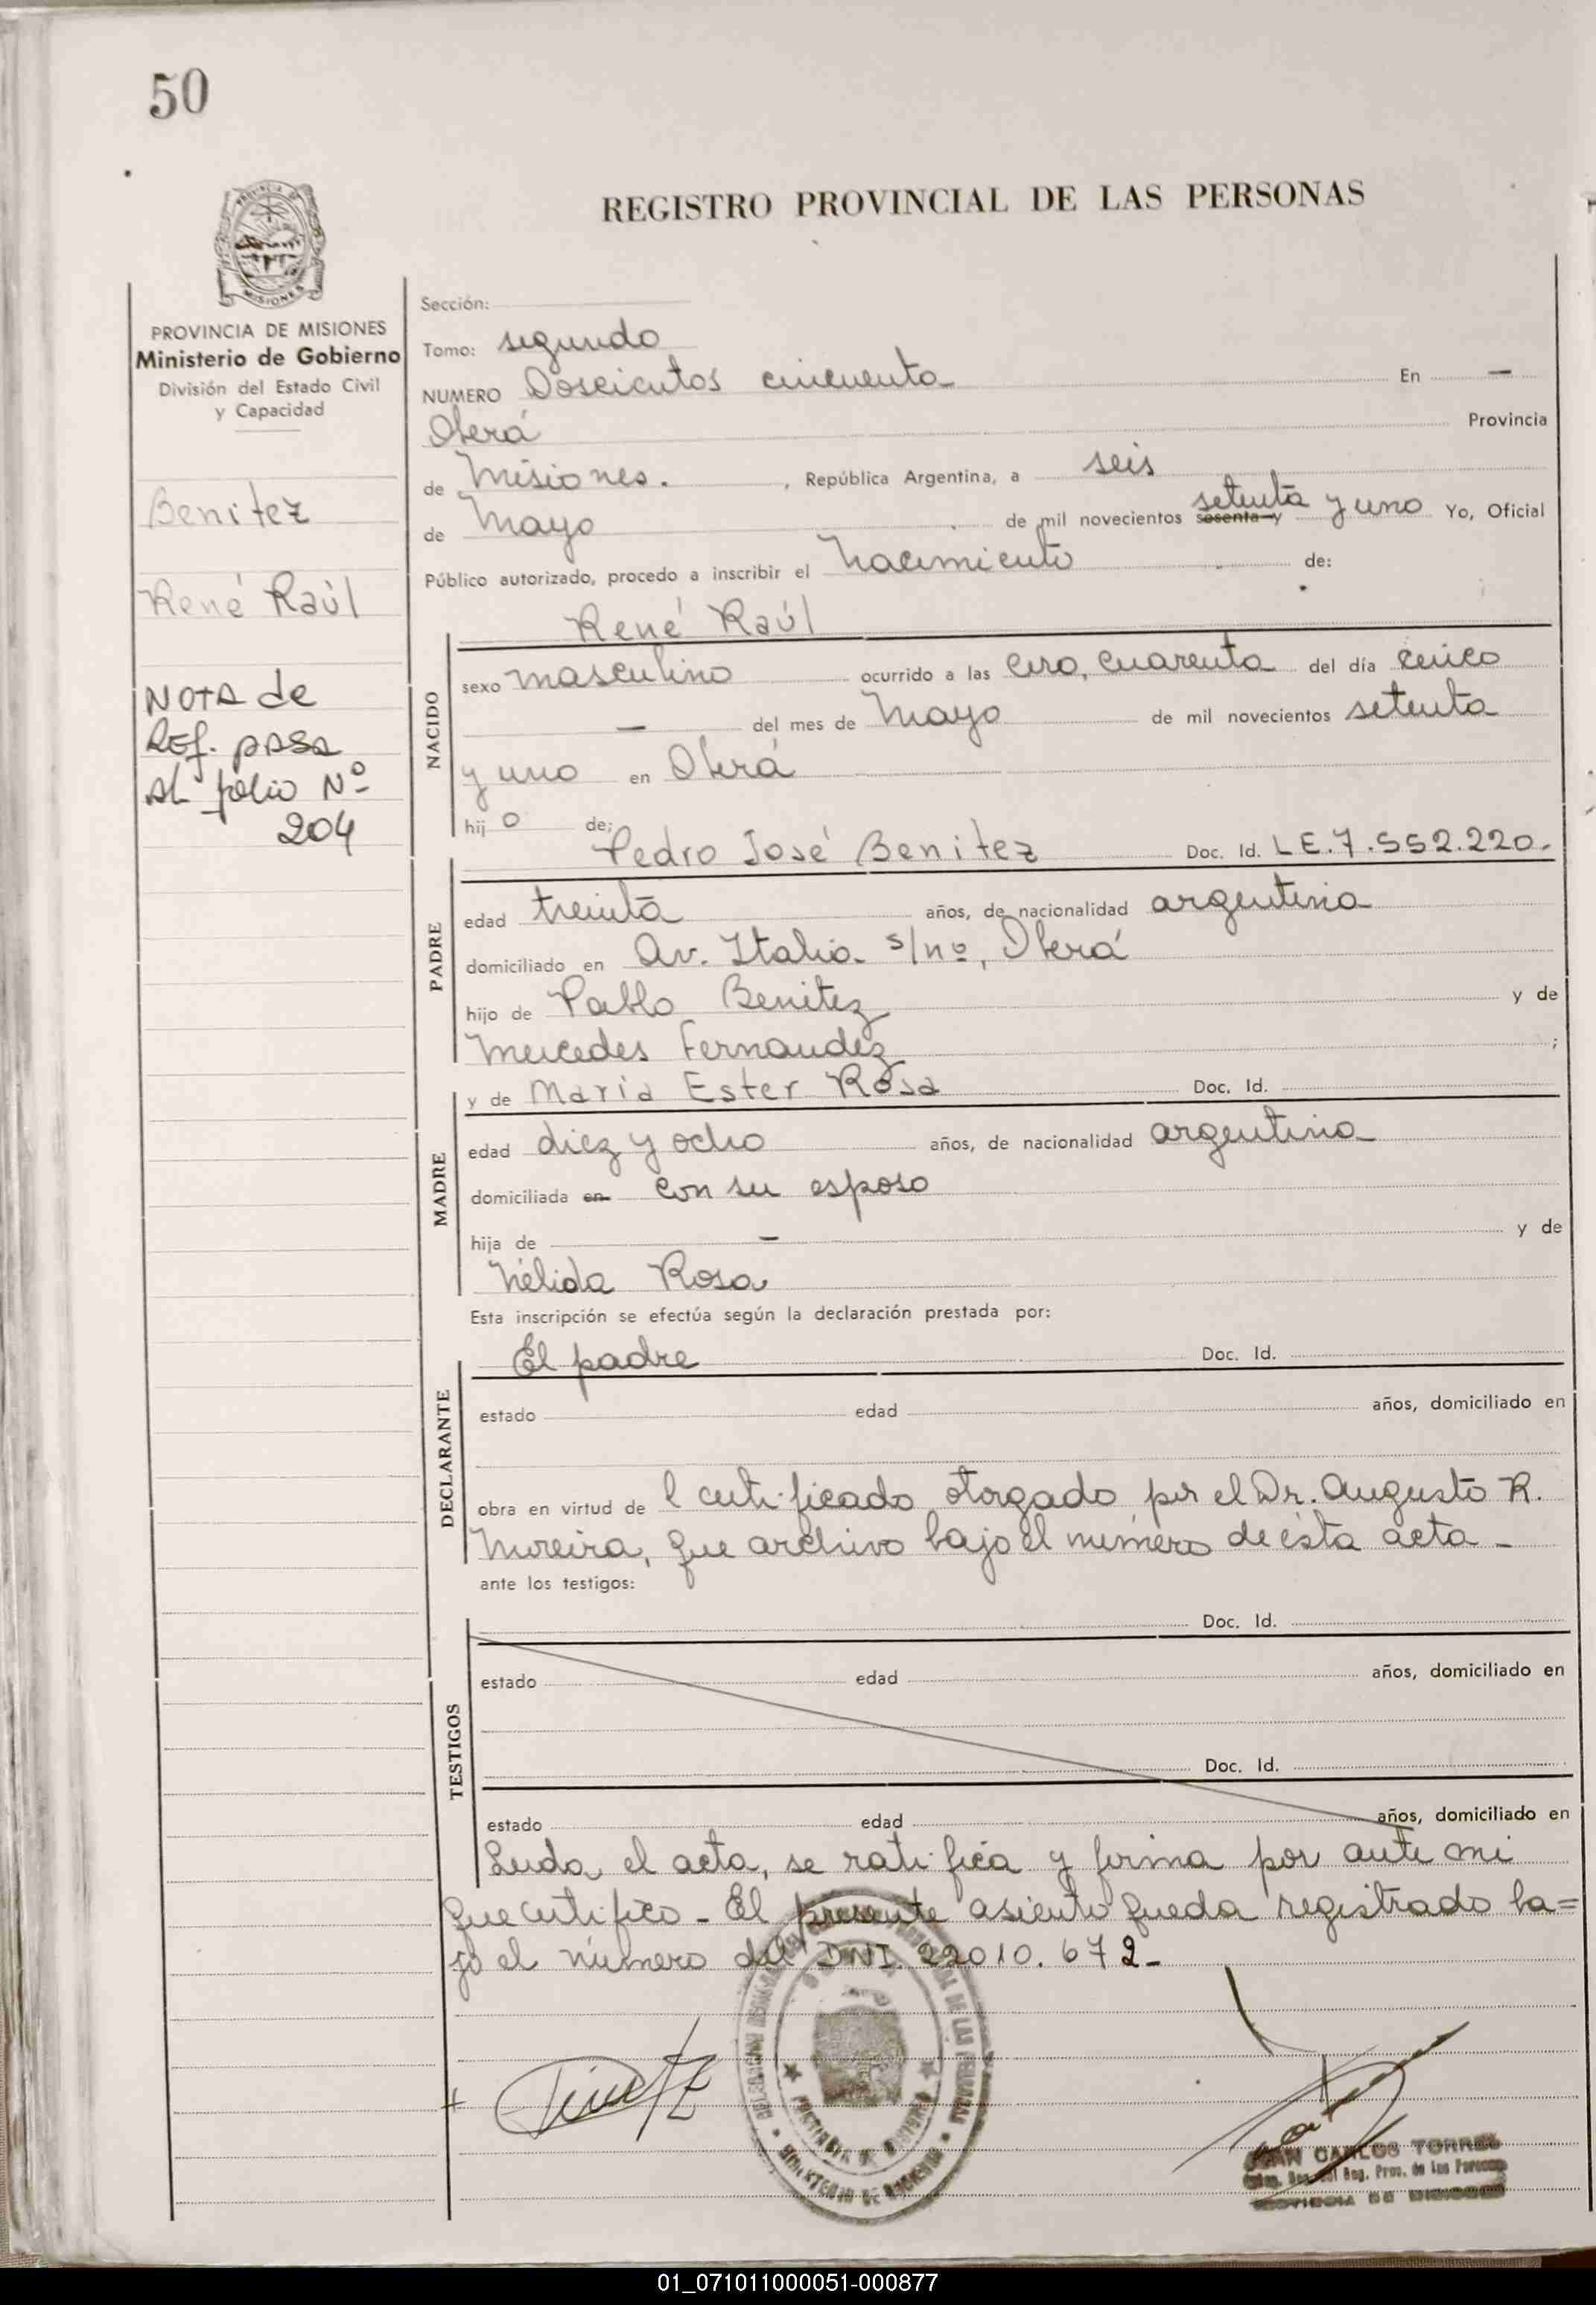 50
REGISTRO PROVINCIAL DE LAS PERSONAS
MISIONES
PROVINCIA DE MISIONES
Ministerio de Gobierno
División del Estado Civil
y Capacidad
Benitez
René Raúl
NOTA de
Ref. pasa
al folio Nº
204
Sección:
Tomo: segundo
NUMERO Doscientos cincuenta En —
Oberá Provincia
de Misiones. , República Argentina, a seis
de Mayo de mil novecientos sesenta y setenta y uno Yo, Oficial
Público autorizado, procedo a inscribir el nacimiento de:
René Raúl
NACIDO
sexo masculino ocurrido a las cero, cuarenta del día cinco
— del mes de Mayo de mil novecientos setenta
y uno en Oberá
hij o de;
Pedro José Benitez Doc. Id. LE.7.552.220.
PADRE
edad treinta años, de nacionalidad argentina
domiciliado en Av. Italia s/nº, Oberá
hijo de Pablo Benitez y de
Mercedes Fernandez ;
y de María Ester Rosa Doc. Id.
MADRE
edad diez y ocho años, de nacionalidad argentina
domiciliada en con su esposo
hija de — y de
Nélida Rosa
Esta inscripción se efectúa según la declaración prestada por:
El padre Doc. Id.
DECLARANTE
estado edad años, domiciliado en
obra en virtud de l certificado otorgado por el Dr. Augusto R.
Moreira, que archivo bajo el número de ésta acta -
ante los testigos:
Doc. Id.
TESTIGOS
estado edad años, domiciliado en
Doc. Id.
estado edad años, domiciliado en
Leída el acta, se ratifica y firma por ante mi
que certifico - El presente asiento queda registrado ba=
jo el número del DNI. 22010.672-
JUAN CARLOS TORRES
Reg. Prov. de las Personas
PROVINCIA DE MISIONES
01_071011000051-000877